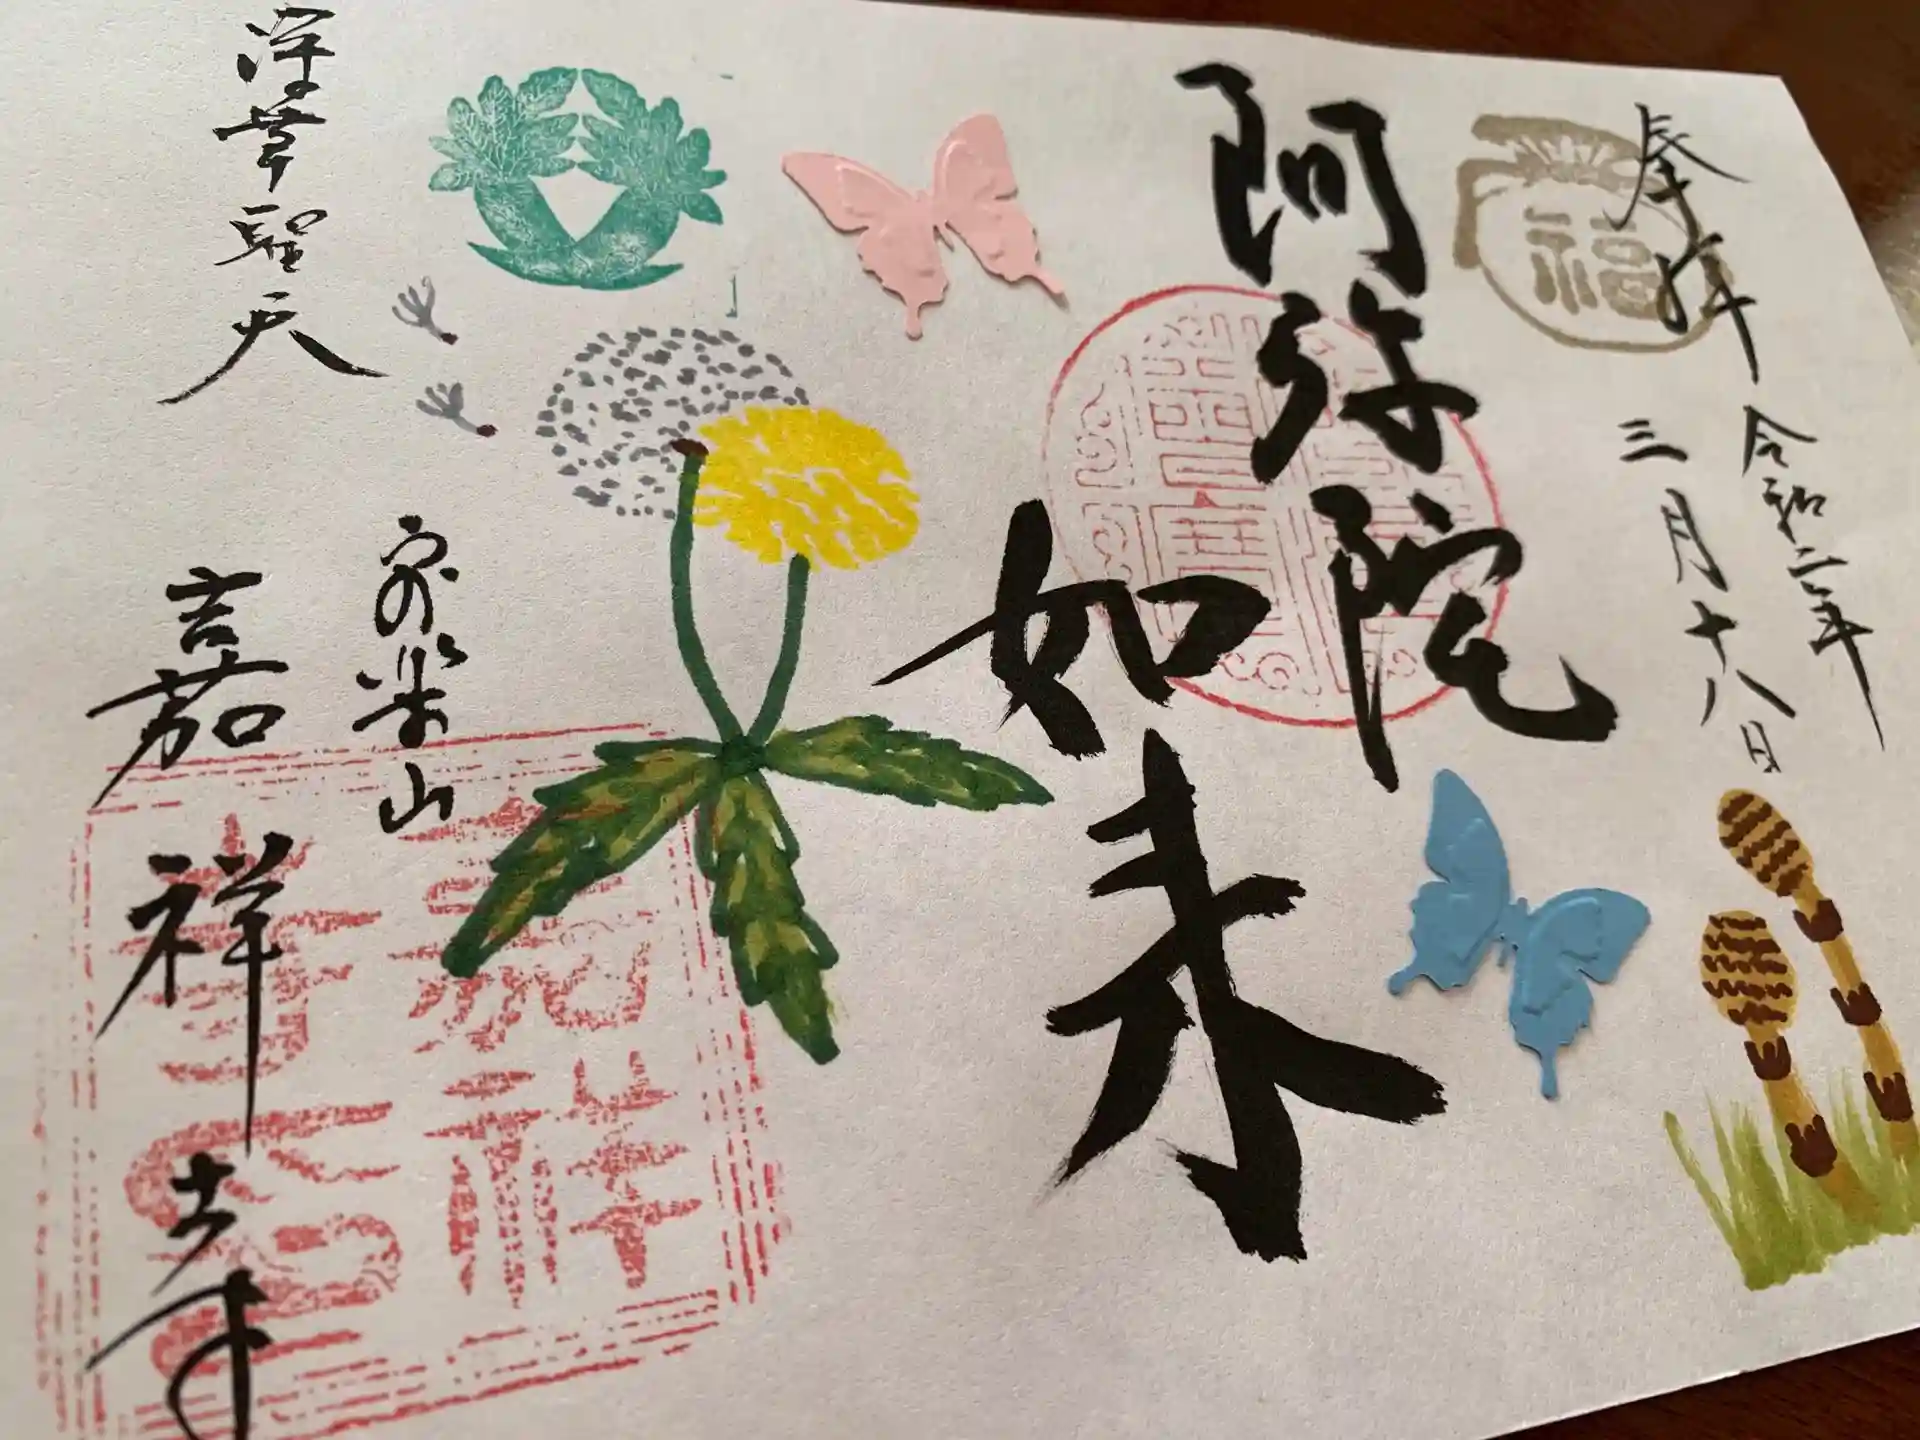 奉拝
令和二年
三月十八日
福
阿弥陀
如来
深草聖天
山
嘉祥寺
嘉祥
寺印